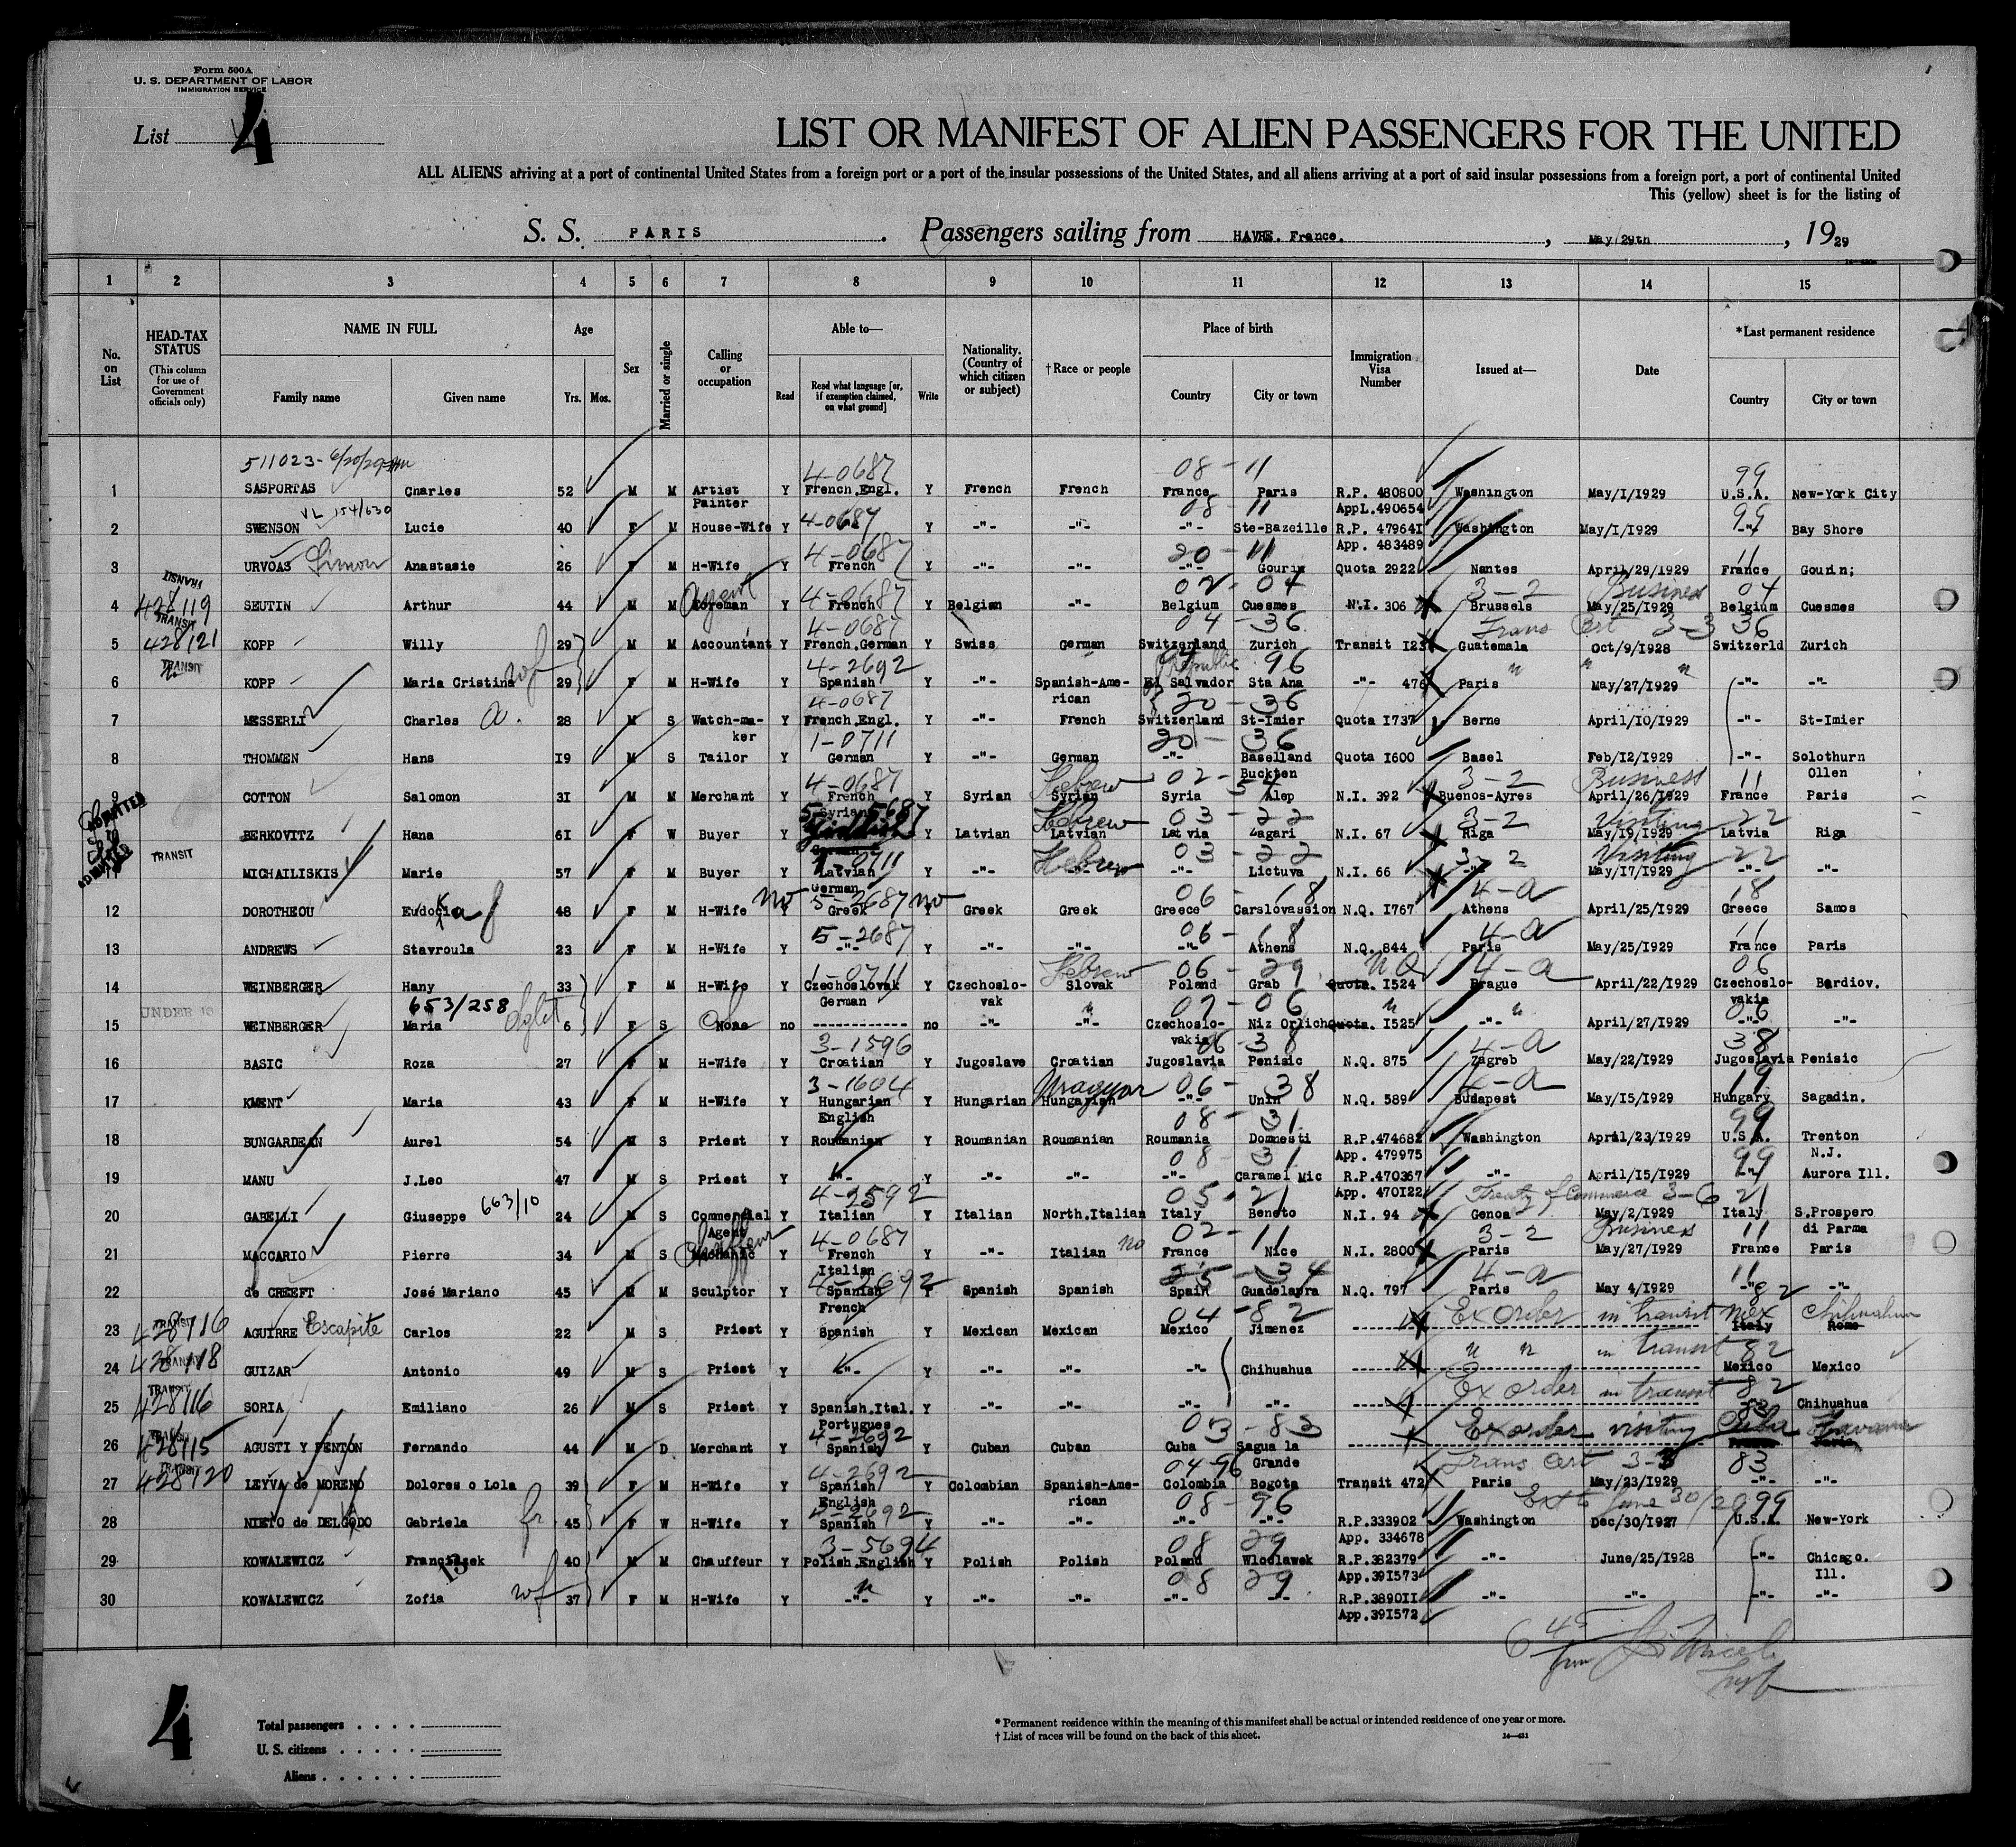 Form 500A
U. S. DEPARTMENT OF LABOR
IMMIGRATION SERVICE
List 4
LIST OR MANIFEST OF ALIEN PASSENGERS FOR THE UNITED
ALL ALIENS arriving at a port of continental United States from a foreign port or a port of the insular possessions of the United States, and all aliens arriving at a port of said insular possessions from a foreign port, a port of continental United
This (yellow) sheet is for the listing of
S. S. PARIS. Passengers sailing from HAVRE. France., May/29th, 1929
1 2 3 4 5 6 7 8 9 10 11 12 13 14 15
No. on List
HEAD-TAX STATUS (This column for use of Government officials only)
NAME IN FULL
Family name Given name
Age Yrs. Mos.
Sex
Married or single
Calling or occupation
Able to—
Read Read what language [or, if exemption claimed, on what ground] Write
Nationality. (Country of which citizen or subject)
†Race or people
Place of birth
Country City or town
Immigration Visa Number
Issued at—
Date
*Last permanent residence
Country City or town
511023- 4-0687 08-11 99
1 SASPORTAS Charles 52 M M Artist Y French.Engl. Y French French France Paris R.P. 480800 Washington May/1/1929 U.S.A. New-York City
Painter AppL.490654
VL 154/630 4-0687 08-11 99
2 SWENSON Lucie 40 F M House-Wife Y Y -"- -"- -"- Ste-Bazeille R.P. 479641 Washington May/1/1929 -"- Bay Shore
App. 483489
4-0687 20-11 11
3 URVOAS Simon Anastasie 26 F M H-Wife Y French Y -"- -"- -"- Gourin Quota 2922 Nantes April/29/1929 France Gourin;
TRANSIT 428119 Agent 4-0687 02-04 3-2 Business 04
4 SEUTIN Arthur 44 M M Foreman Y French Y Belgian -"- Belgium Cuesmes N.I. 306 Brussels May/25/1929 Belgium Cuesmes
TRANSIT 428121 4-0687 04-36 Trans Cert 3-3 36
5 KOPP Willy 29 M M Accountant Y French.German Y Swiss German Switzerland Zurich Transit 123 Guatemala Oct/9/1928 Switzerld Zurich
TRANSIT 4-2692 Republic 96
6 KOPP Maria Cristina wf 29 F M H-Wife Y Spanish Y -"- Spanish-Ame- El Salvador Sta Ana -"- 476 Paris May/27/1929 -"- -"-
rican
4-0687 20-36
7 MESSERLI Charles A. 28 M S Watch-ma- Y French.Engl. Y -"- French Switzerland St-Imier Quota 1737 Berne April/10/1929 -"- St-Imier
ker
1-0711 20-36
8 THOMMEN Hans 19 M S Tailor Y German Y -"- German -"- Baselland Quota 1600 Basel Feb/12/1929 -"- Solothurn
Buckten Ollen
4-0687 Hebrew 02-54 3-2 Business 11
9 COTTON Salomon 31 M M Merchant Y French Y Syrian Syrian Syria Alep N.I. 392 Buenos-Ayres April/26/1929 France Paris
Syrian
ADMITTED Yiddish Hebrew 03-22 3-2 Visiting 22
BERKOVITZ Hana 61 F W Buyer Y Y Latvian Latvian Latvia Zagari N.I. 67 Riga May/19/1929 Latvia Riga
German
ADMITTED TRANSIT 1-0711 Hebrew 03-22 3-2 Visiting 22
MICHAILISKIS Marie 57 F M Buyer Y Latvian Y -"- -"- -"- Lictuva N.I. 66 -"- May/17/1929 -"- -"-
German
no 5-2687 no 06-18 4-a 18
12 DOROTHEOU Eudocia 48 F M H-Wife Y Greek Y Greek Greek Greece Carslovassion N.Q. 1767 Athens April/25/1929 Greece Samos
5-2687 06-18 4-a 11
13 ANDREWS Stavroula 23 F M H-Wife Y -"- Y -"- -"- -"- Athens N.Q. 844 Paris May/25/1929 France Paris
1-0711 Hebrew 06-29 N.Q. 4-a 06
14 WEINBERGER Hany 33 F M H-Wife Y Czechoslovak Y Czechoslo- Slovak Poland Grab Quota. 1524 Prague April/22/1929 Czechoslo- Bardiov.
German vak vakia
UNDER 16 653/258 07-06 06
15 WEINBERGER Maria 6 F S None no ------------ no -"- -"- Czechoslo- Niz Orlich Quota. 1525 -"- April/27/1929 -"- -"-
vakia
3-1596 06-38 4-a 38
16 BASIC Roza 27 F M H-Wife Y Croatian Y Jugoslave Croatian Jugoslavia Penisic N.Q. 875 Zagreb May/22/1929 Jugoslavia Penisic
3-1604 Magyar 06-38 4-a 19
17 KMENT Maria 43 F M H-Wife Y Hungarian Y Hungarian Hungarian -"- Unin N.Q. 589 Budapest May/15/1929 Hungary Sagadin.
English
08-31 99
18 BUNGARDEAN Aurel 54 M S Priest Y Roumanian Y Roumanian Roumanian Roumania Domnesti R.P.474682 Washington April/23/1929 U.S.A. Trenton
App. 479975 N.J.
08-31 99
19 MANU J.Leo 47 M S Priest Y -"- Y -"- -"- -"- Caramel Mic R.P.470367 -"- April/15/1929 -"- Aurora Ill.
App. 470122
663/10 4-2592 05-21 Treaty of Commerce 3-6 21
20 GABELLI Giuseppe 24 M S Commercial Y Italian Y Italian North.Italian Italy Beneto N.I. 94 Genoa May/2/1929 Italy S.Prospero
Agent di Parma
Chauffeur 4-0687 no 02-11 3-2 Business 11
21 MACCARIO Pierre 34 M S Mechanic Y French Y -"- Italian France Nice N.I. 2800 Paris May/27/1929 France Paris
Italian
4-2692 25-34 4-a 11
22 de CREEFT José Mariano 45 M M Sculptor Y Spanish Y Spanish Spanish Spain Guadelapra N.Q. 797 Paris May 4/1929 -"- -"-
French
TRANSIT 428116 04-82 Ex Order in transit Mex 82 Chihuahua
23 AGUIRRE Escapite Carlos 22 M S Priest Y Spanish Y Mexican Mexican Mexico Jimenez Italy Rome
TRANSIT 428118 " " in transit 82
24 GUIZAR Antonio 49 M S Priest Y -"- Y -"- -"- -"- Chihuahua Mexico Mexico
TRANSIT 428116 Ex order in transit 82
25 SORIA Emiliano 26 M S Priest Y Spanish.Ital. Y -"- -"- -"- -"- -"- Chihuahua
Portugues
TRANSIT 428115 4-2692 03-83 Ex order visiting Cuba 83 Havana
26 AGUSTI Y PENTON Fernando 44 M D Merchant Y Spanish Y Cuban Cuban Cuba Sagua la France Paris
Grande
TRANSIT 428120 4-2692 04-96 Trans Cert 3-3 83
27 LEYVA de MORENO Dolores o Lola 39 F M H-Wife Y Spanish Y Colombian Spanish-Ame- Colombia Bogota Transit 472 Paris May/23/1929 -"- -"-
English rican
4-2692 08-96 Ext to June 30/29 99
28 NIETO de DELGODO Gabriela 45 F W H-Wife Y Spanish Y -"- -"- -"- -"- R.P.333902 Washington Dec/30/1927 U.S.A. New-York
App. 334678
3-5694 08 29
29 KOWALEWICZ Franciszek 40 M M Chauffeur Y Polish.English Y Polish Polish Poland Wloclawek R.P.382379 -"- June/25/1928 -"- Chicago.
13 App.391573 Ill.
08 29
30 KOWALEWICZ Zofia wf 37 F M H-Wife Y -"- Y -"- -"- -"- -"- R.P.389011 -"- -"- -"- -"-
App.391572
4
Total passengers
U. S. citizens
Aliens
* Permanent residence within the meaning of this manifest shall be actual or intended residence of one year or more.
† List of races will be found on the back of this sheet.
14—431